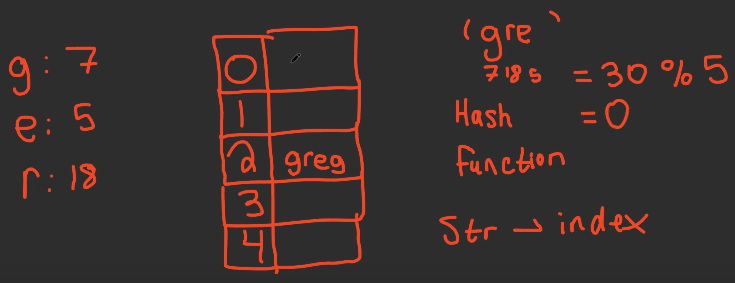 g: 7
e: 5
r: 18
0
1
2 greg
3
4
'gre'
7 18 5 = 30 % 5
Hash = 0
function
Str → index